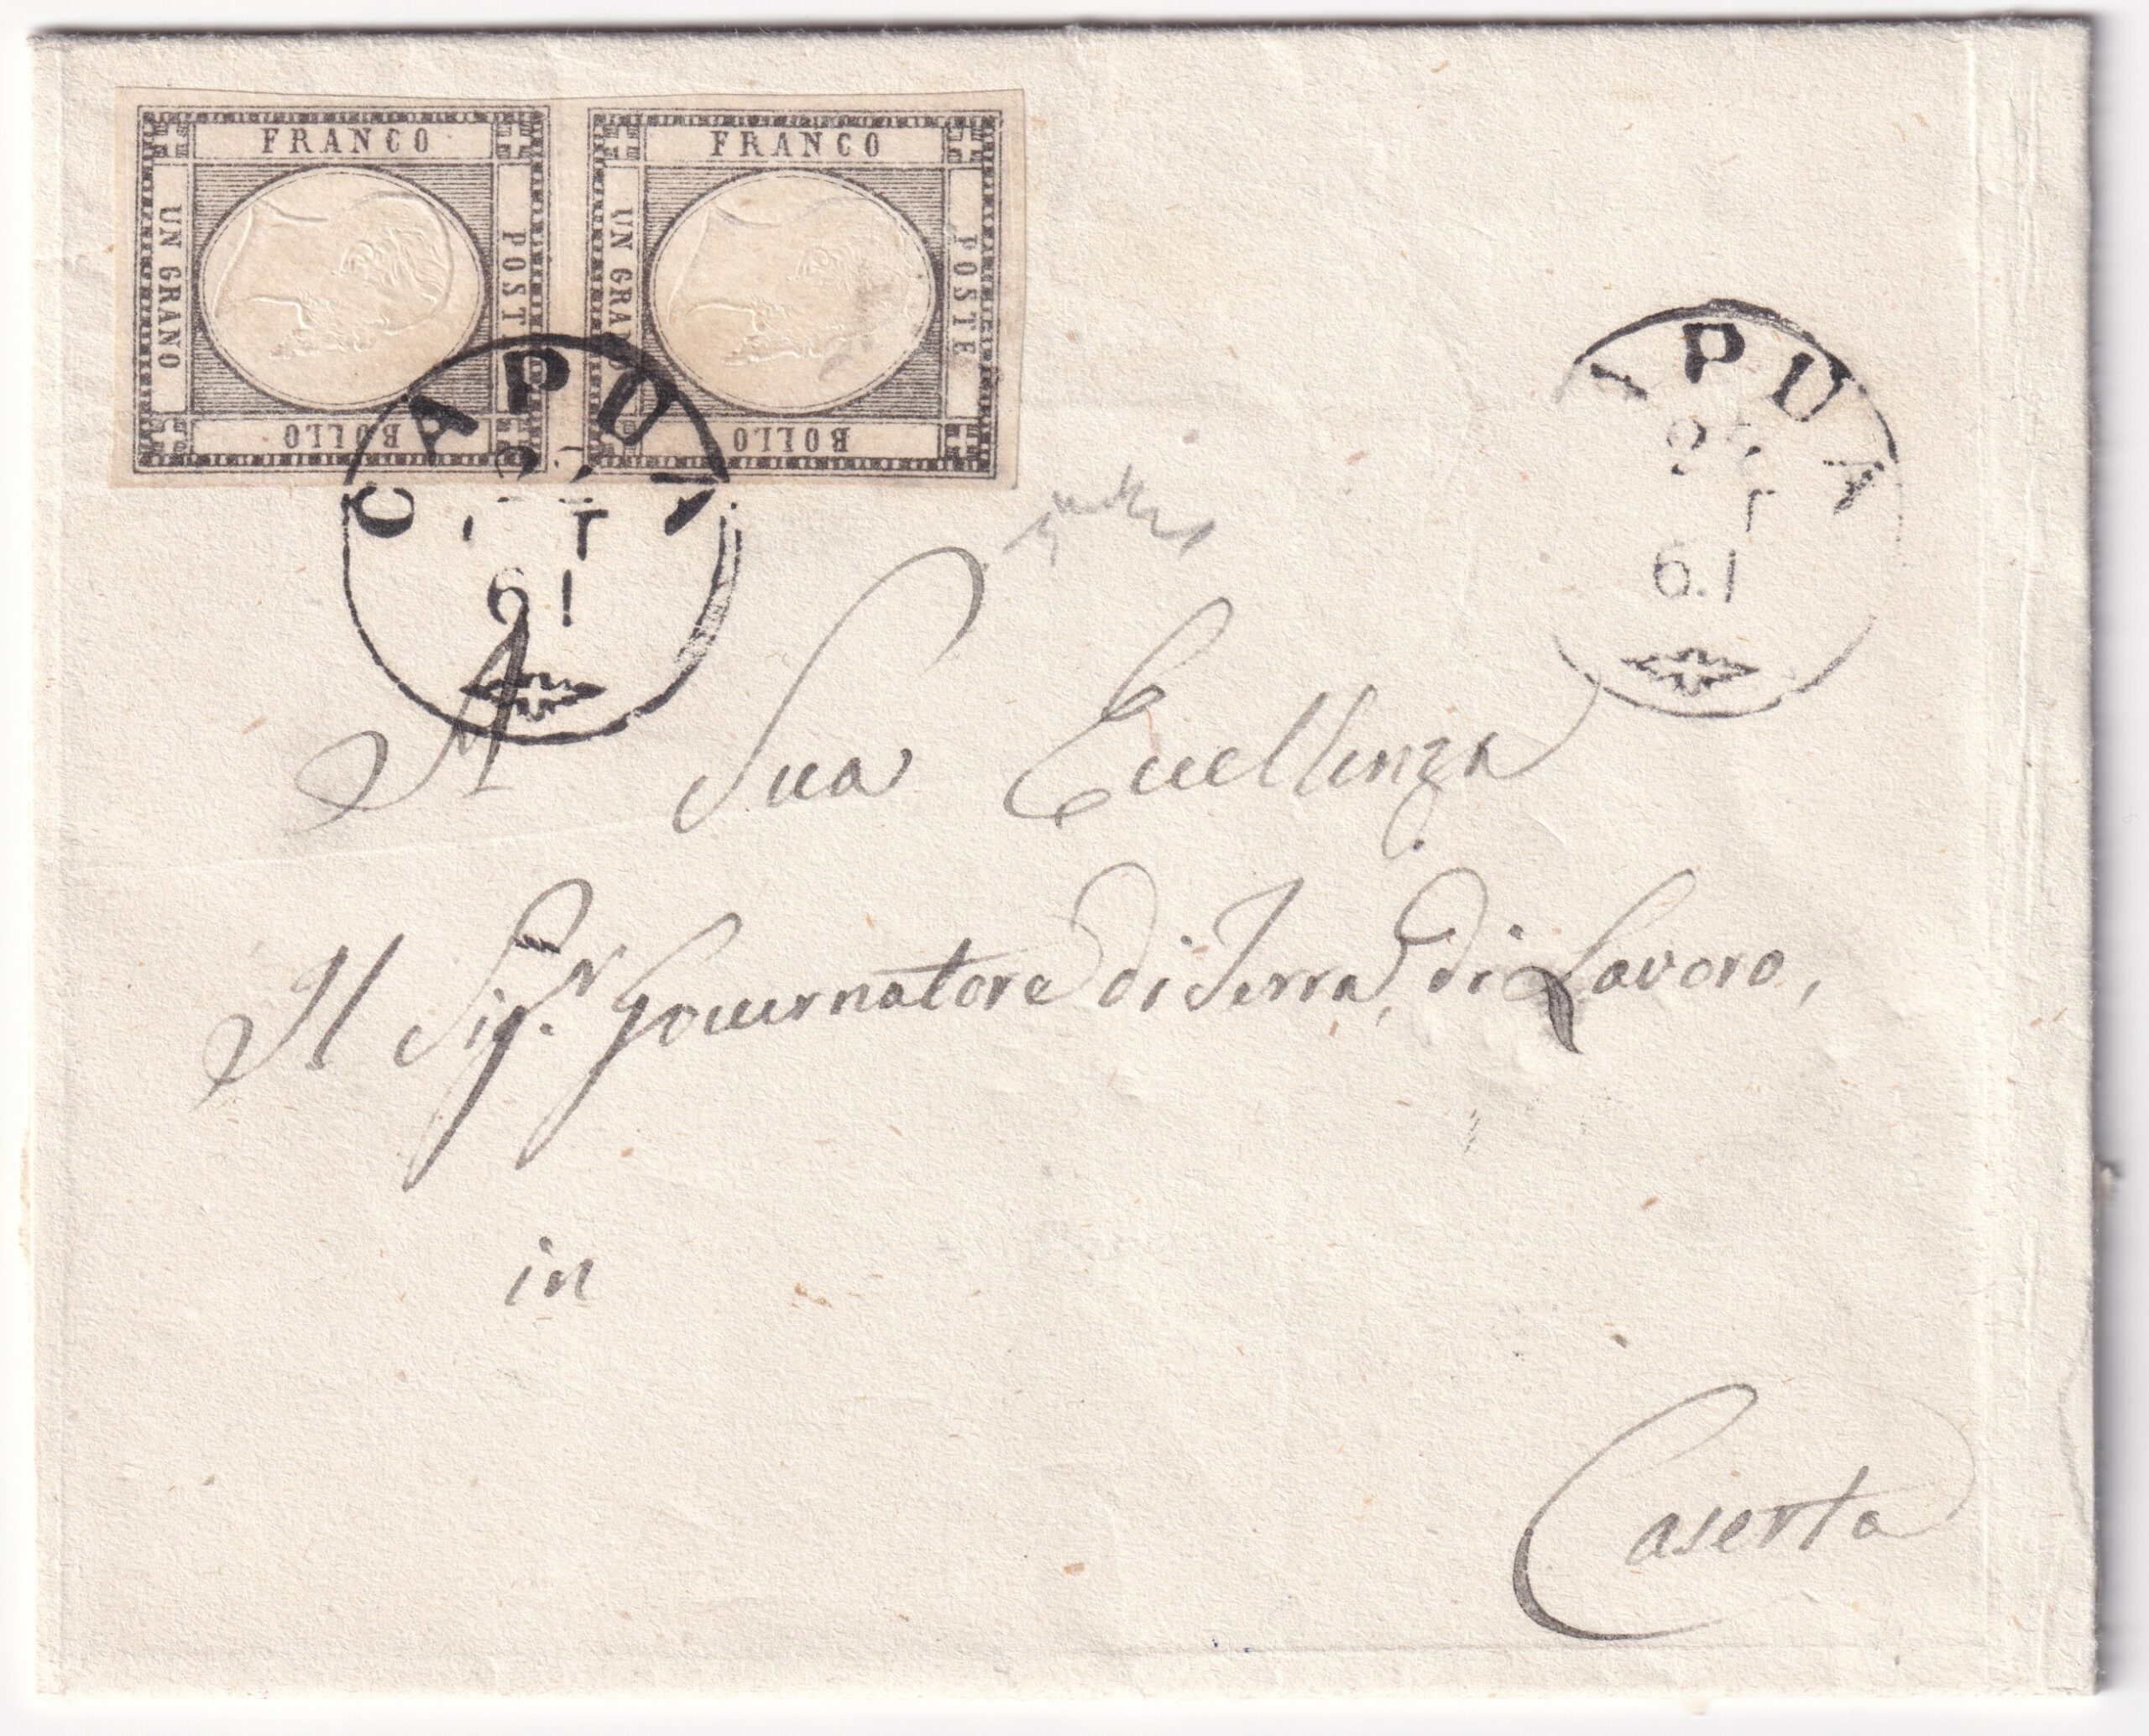 FRANCO
UN GRANO
POSTE
BOLLO
FRANCO
UN GRANO
POSTE
BOLLO
CAPUA
61
APUA
61
A Sua Eccellenza
Il Sigr. Governatore di Terra di Lavoro,
in
Caserta